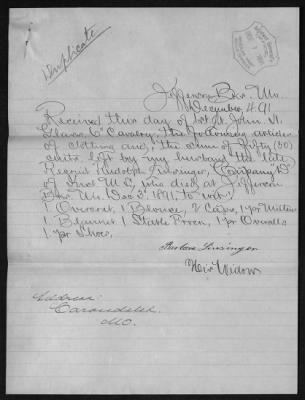 Duplicate
Jefferson Bks. Mo.
December 4. 91
Received this day of 1st Lt. John N.
Glass 6" Cavalry, the following articles
of clothing and, the sum of Fifty (50)
cents, left by my husband the late
Recruit Rudolph Company "D"
of Inst. M. S., who died at Jefferson
Bks. Mo. Dec 3" 1891, to wit:
1 Overcoat, 1 Blouse, 2 Caps, 1 pr Mittens
1 Blanket 1 Stable Frock, 1 pr Overalls
1 pr Shoes.
Barbara
Widow
Address:
Carondelet
Mo.